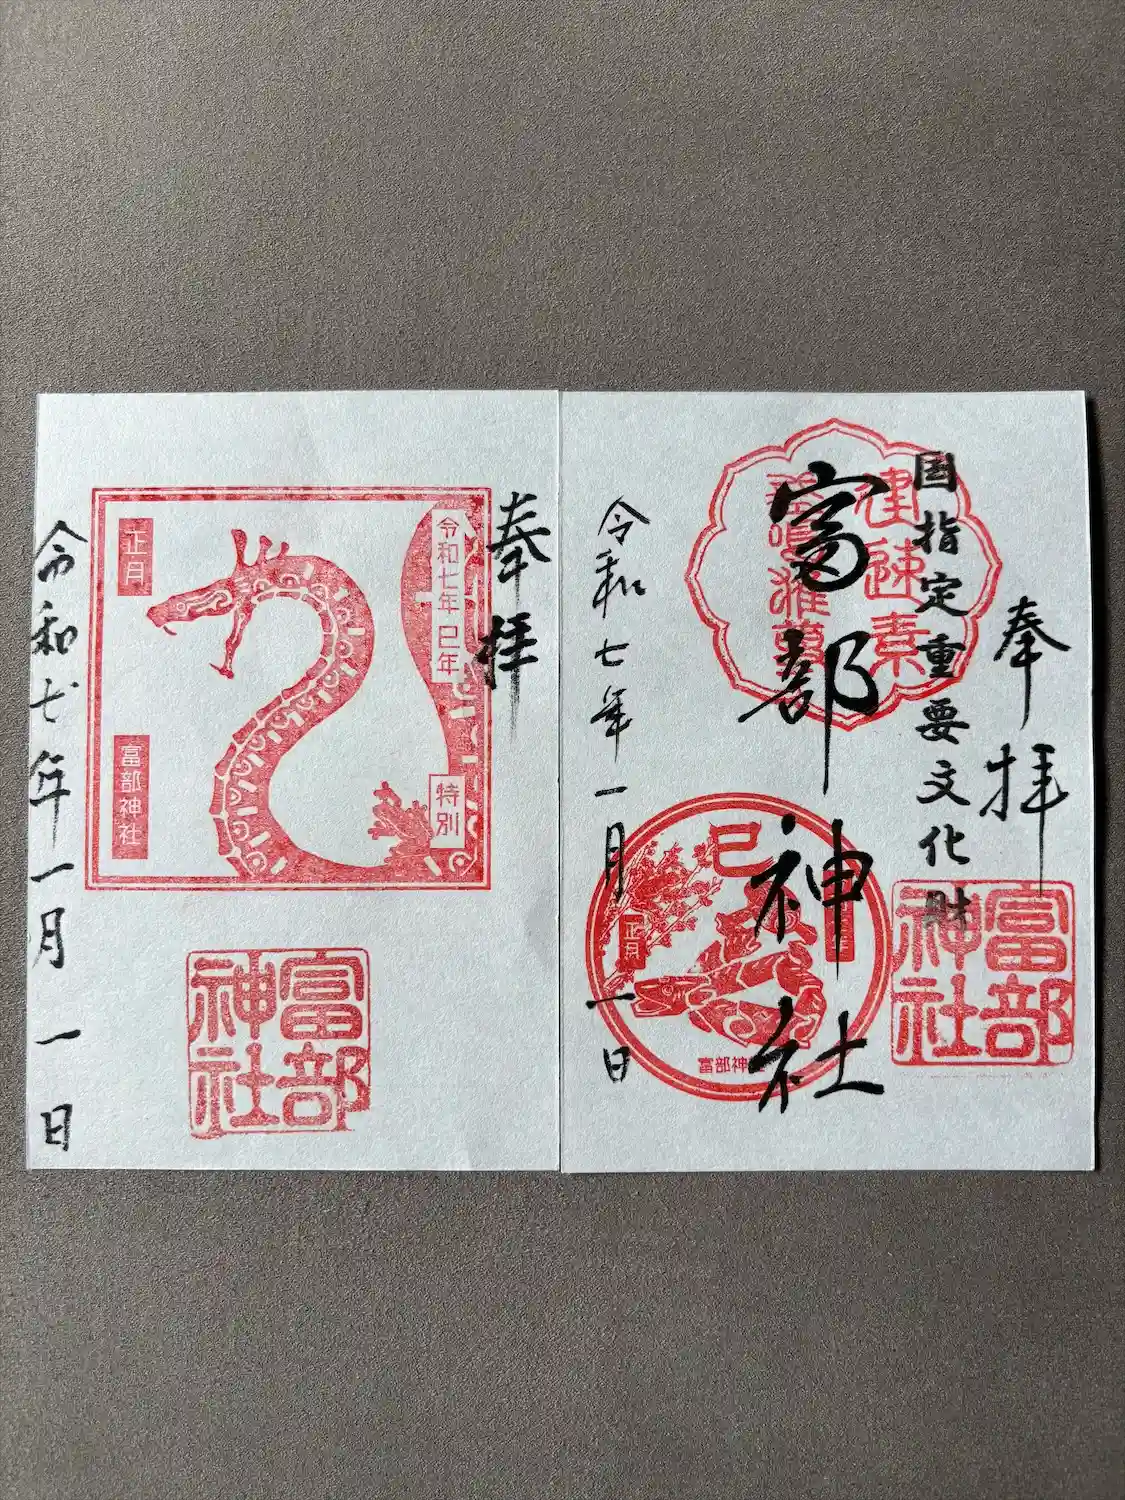 奉拝
国指定重要文化財
富部神社
建速素
令和七年一月一日
巳
正月
富部神
富部
神社
奉拝
令和七年 巳年
特別
正月
富部神社
令和七年一月一日
富部
神社